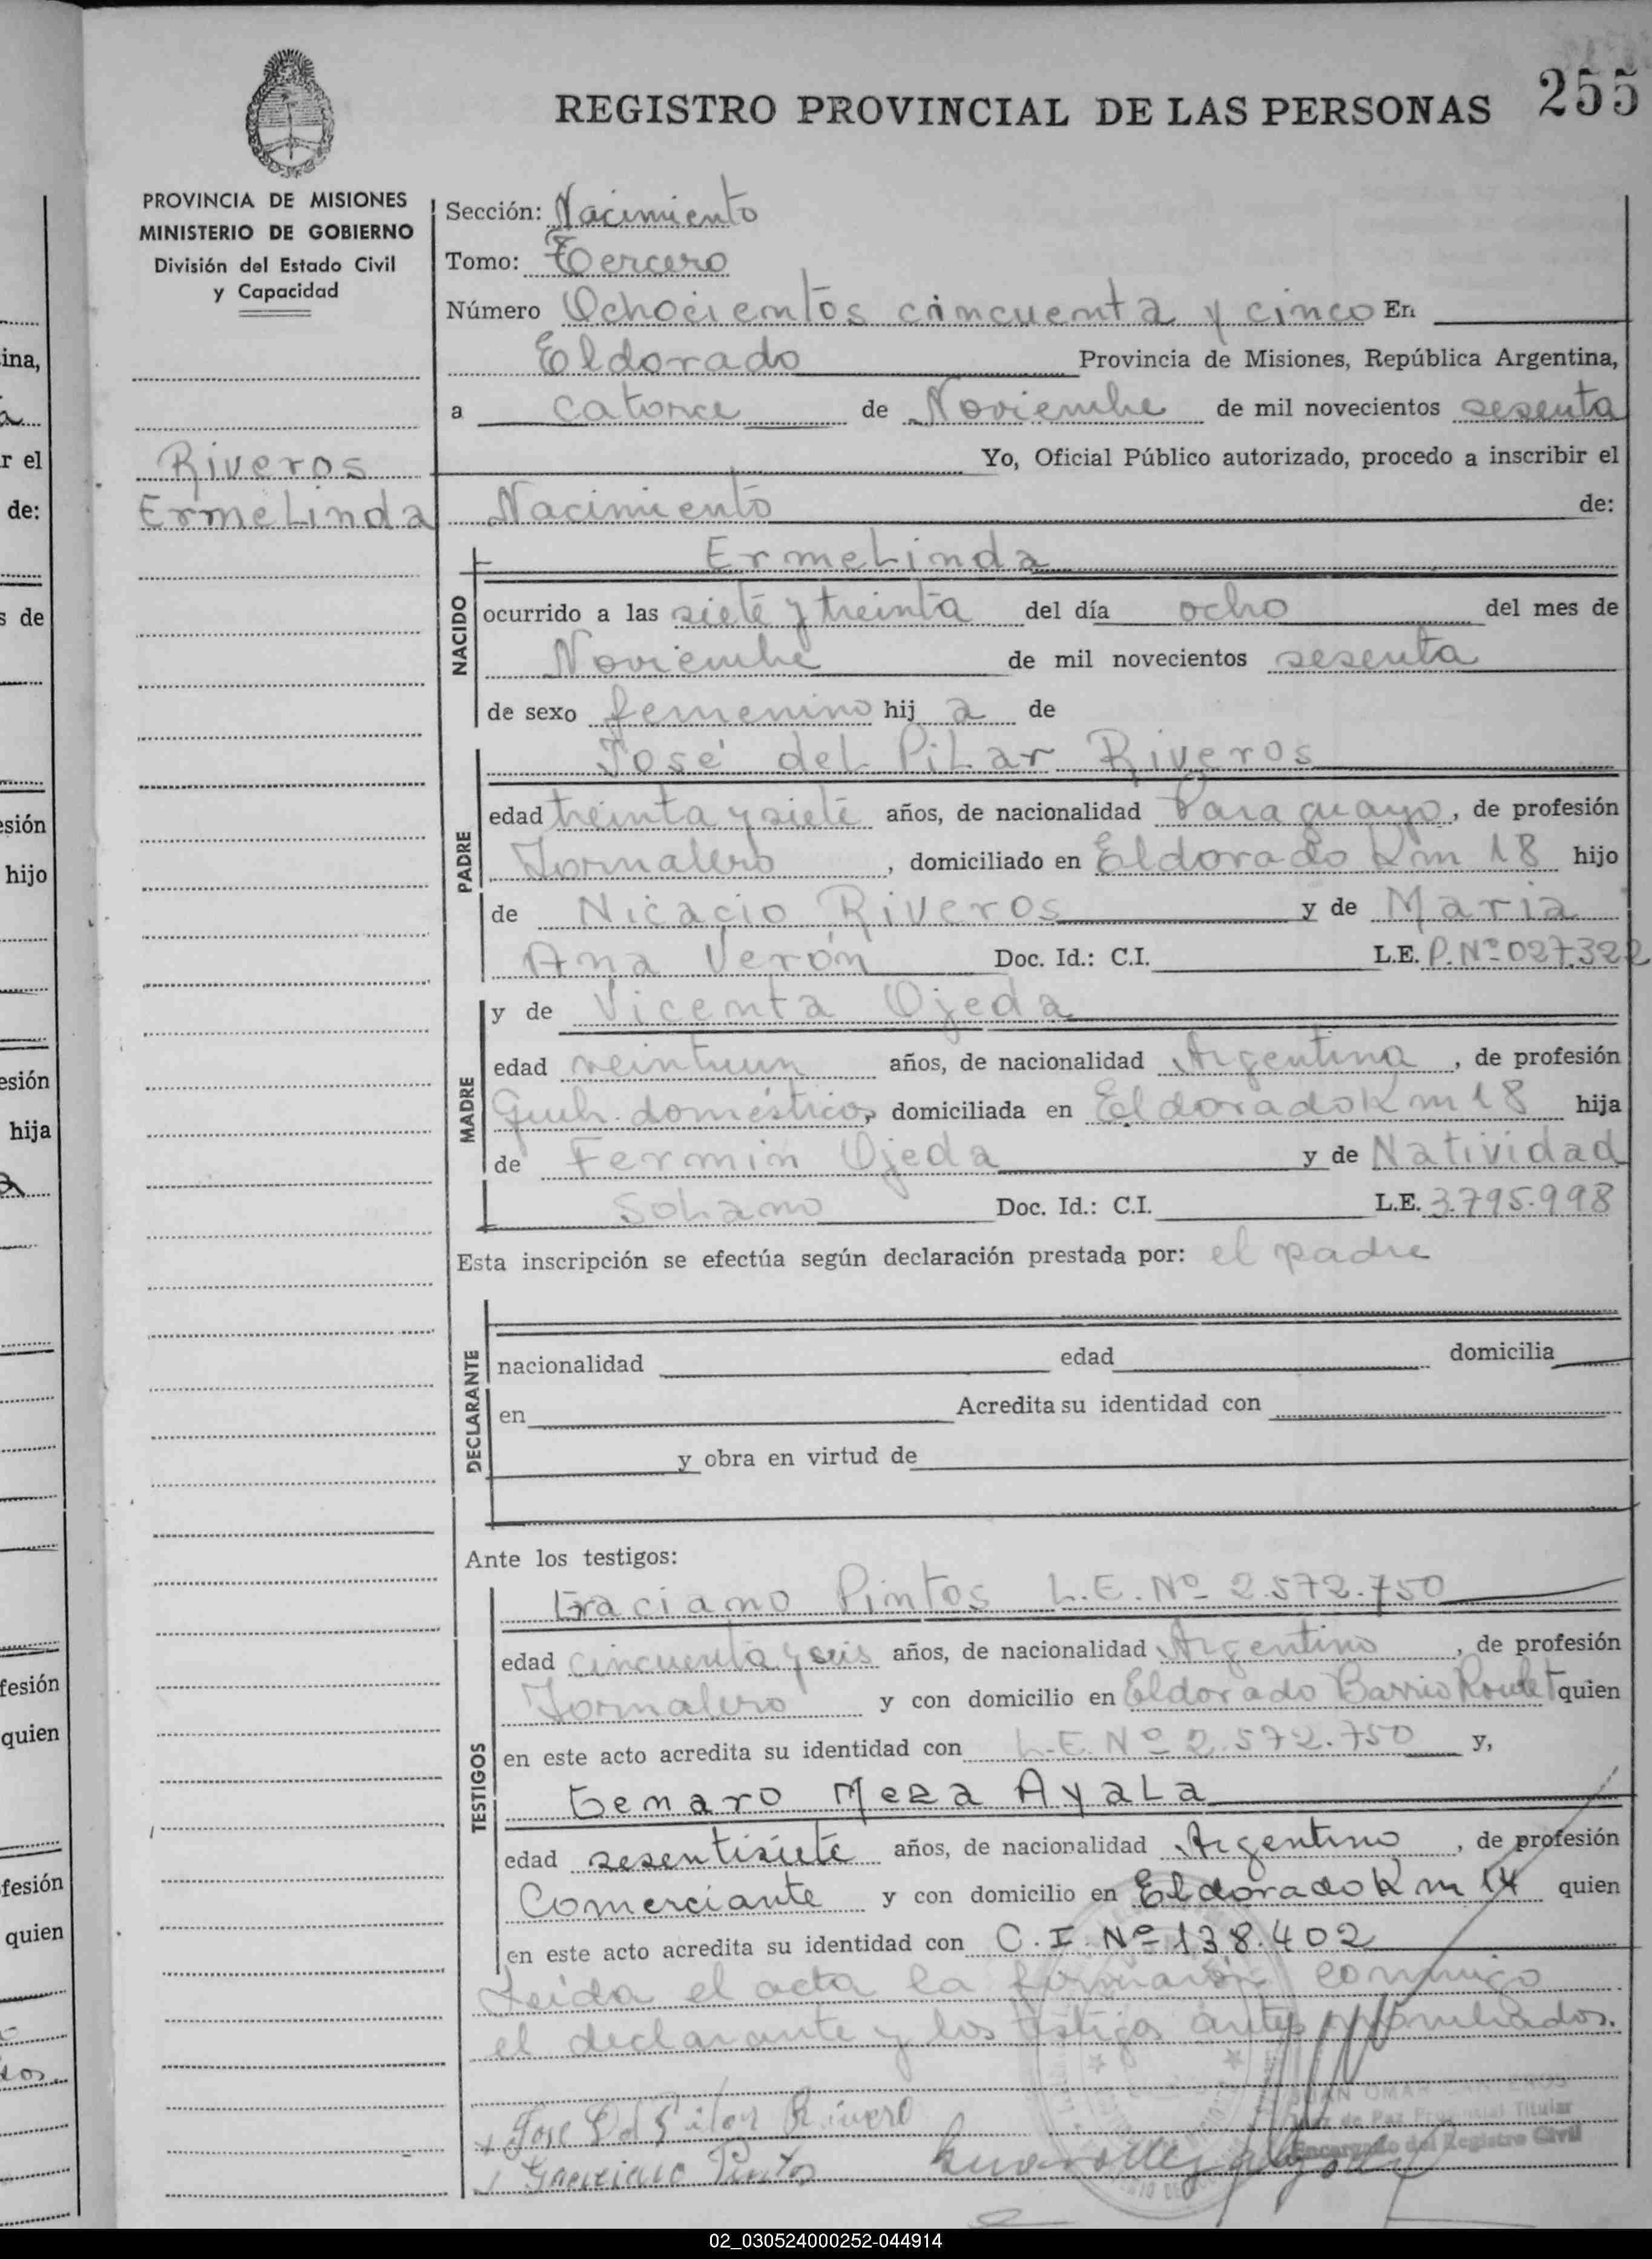 255
REGISTRO PROVINCIAL DE LAS PERSONAS
PROVINCIA DE MISIONES
MINISTERIO DE GOBIERNO
División del Estado Civil
y Capacidad
Riveros
Ermelinda
Sección: Nacimiento
Tomo: Tercero
Número Ochocientos cincuenta y cinco En
Eldorado Provincia de Misiones, República Argentina,
a catorce de Noviembre de mil novecientos sesenta
Yo, Oficial Público autorizado, procedo a inscribir el
Nacimiento de:
Ermelinda
NACIDO
ocurrido a las siete y treinta del día ocho del mes de
Noviembre de mil novecientos sesenta
de sexo femenino hij a de
José del Pilar Riveros
PADRE
edad treinta y siete años, de nacionalidad Paraguayo, de profesión
Jornalero, domiciliado en Eldorado Km 18 hijo
de Nicacio Riveros y de Maria
Ana Verón Doc. Id.: C.I. L.E. P.Nº 027.322
y de Vicenta Ojeda
MADRE
edad veintiun años, de nacionalidad Argentina, de profesión
Queh. domésticos, domiciliada en Eldorado Km 18 hija
de Fermin Ojeda y de Natividad
Solano Doc. Id.: C.I. L.E. 3.795.998
Esta inscripción se efectúa según declaración prestada por: el padre
DECLARANTE
nacionalidad edad domicilia
en Acredita su identidad con
y obra en virtud de
Ante los testigos:
TESTIGOS
Graciano Pintos L.E. Nº 2.572.750
edad cincuenta y seis años, de nacionalidad Argentino, de profesión
Jornalero y con domicilio en Eldorado Barrio Roulet quien
en este acto acredita su identidad con L.E. Nº 2.572.750 y,
Genaro Meza Ayala
edad sesentisiete años, de nacionalidad Argentino, de profesión
Comerciante y con domicilio en Eldorado Km 14 quien
en este acto acredita su identidad con C.I. Nº 138.402
Leida el acta la firmarón conmigo
el declarante y los testigos antes nombrados.
Jose Del Pilar Rivero
Graciano Pintos
OMAR
Juez de Paz Provincial Titular
Encargado del Registro Civil
ina,
r el
de:
s de
esión
hijo
esión
hija
fesión
quien
fesión
quien
02_030524000252-044914